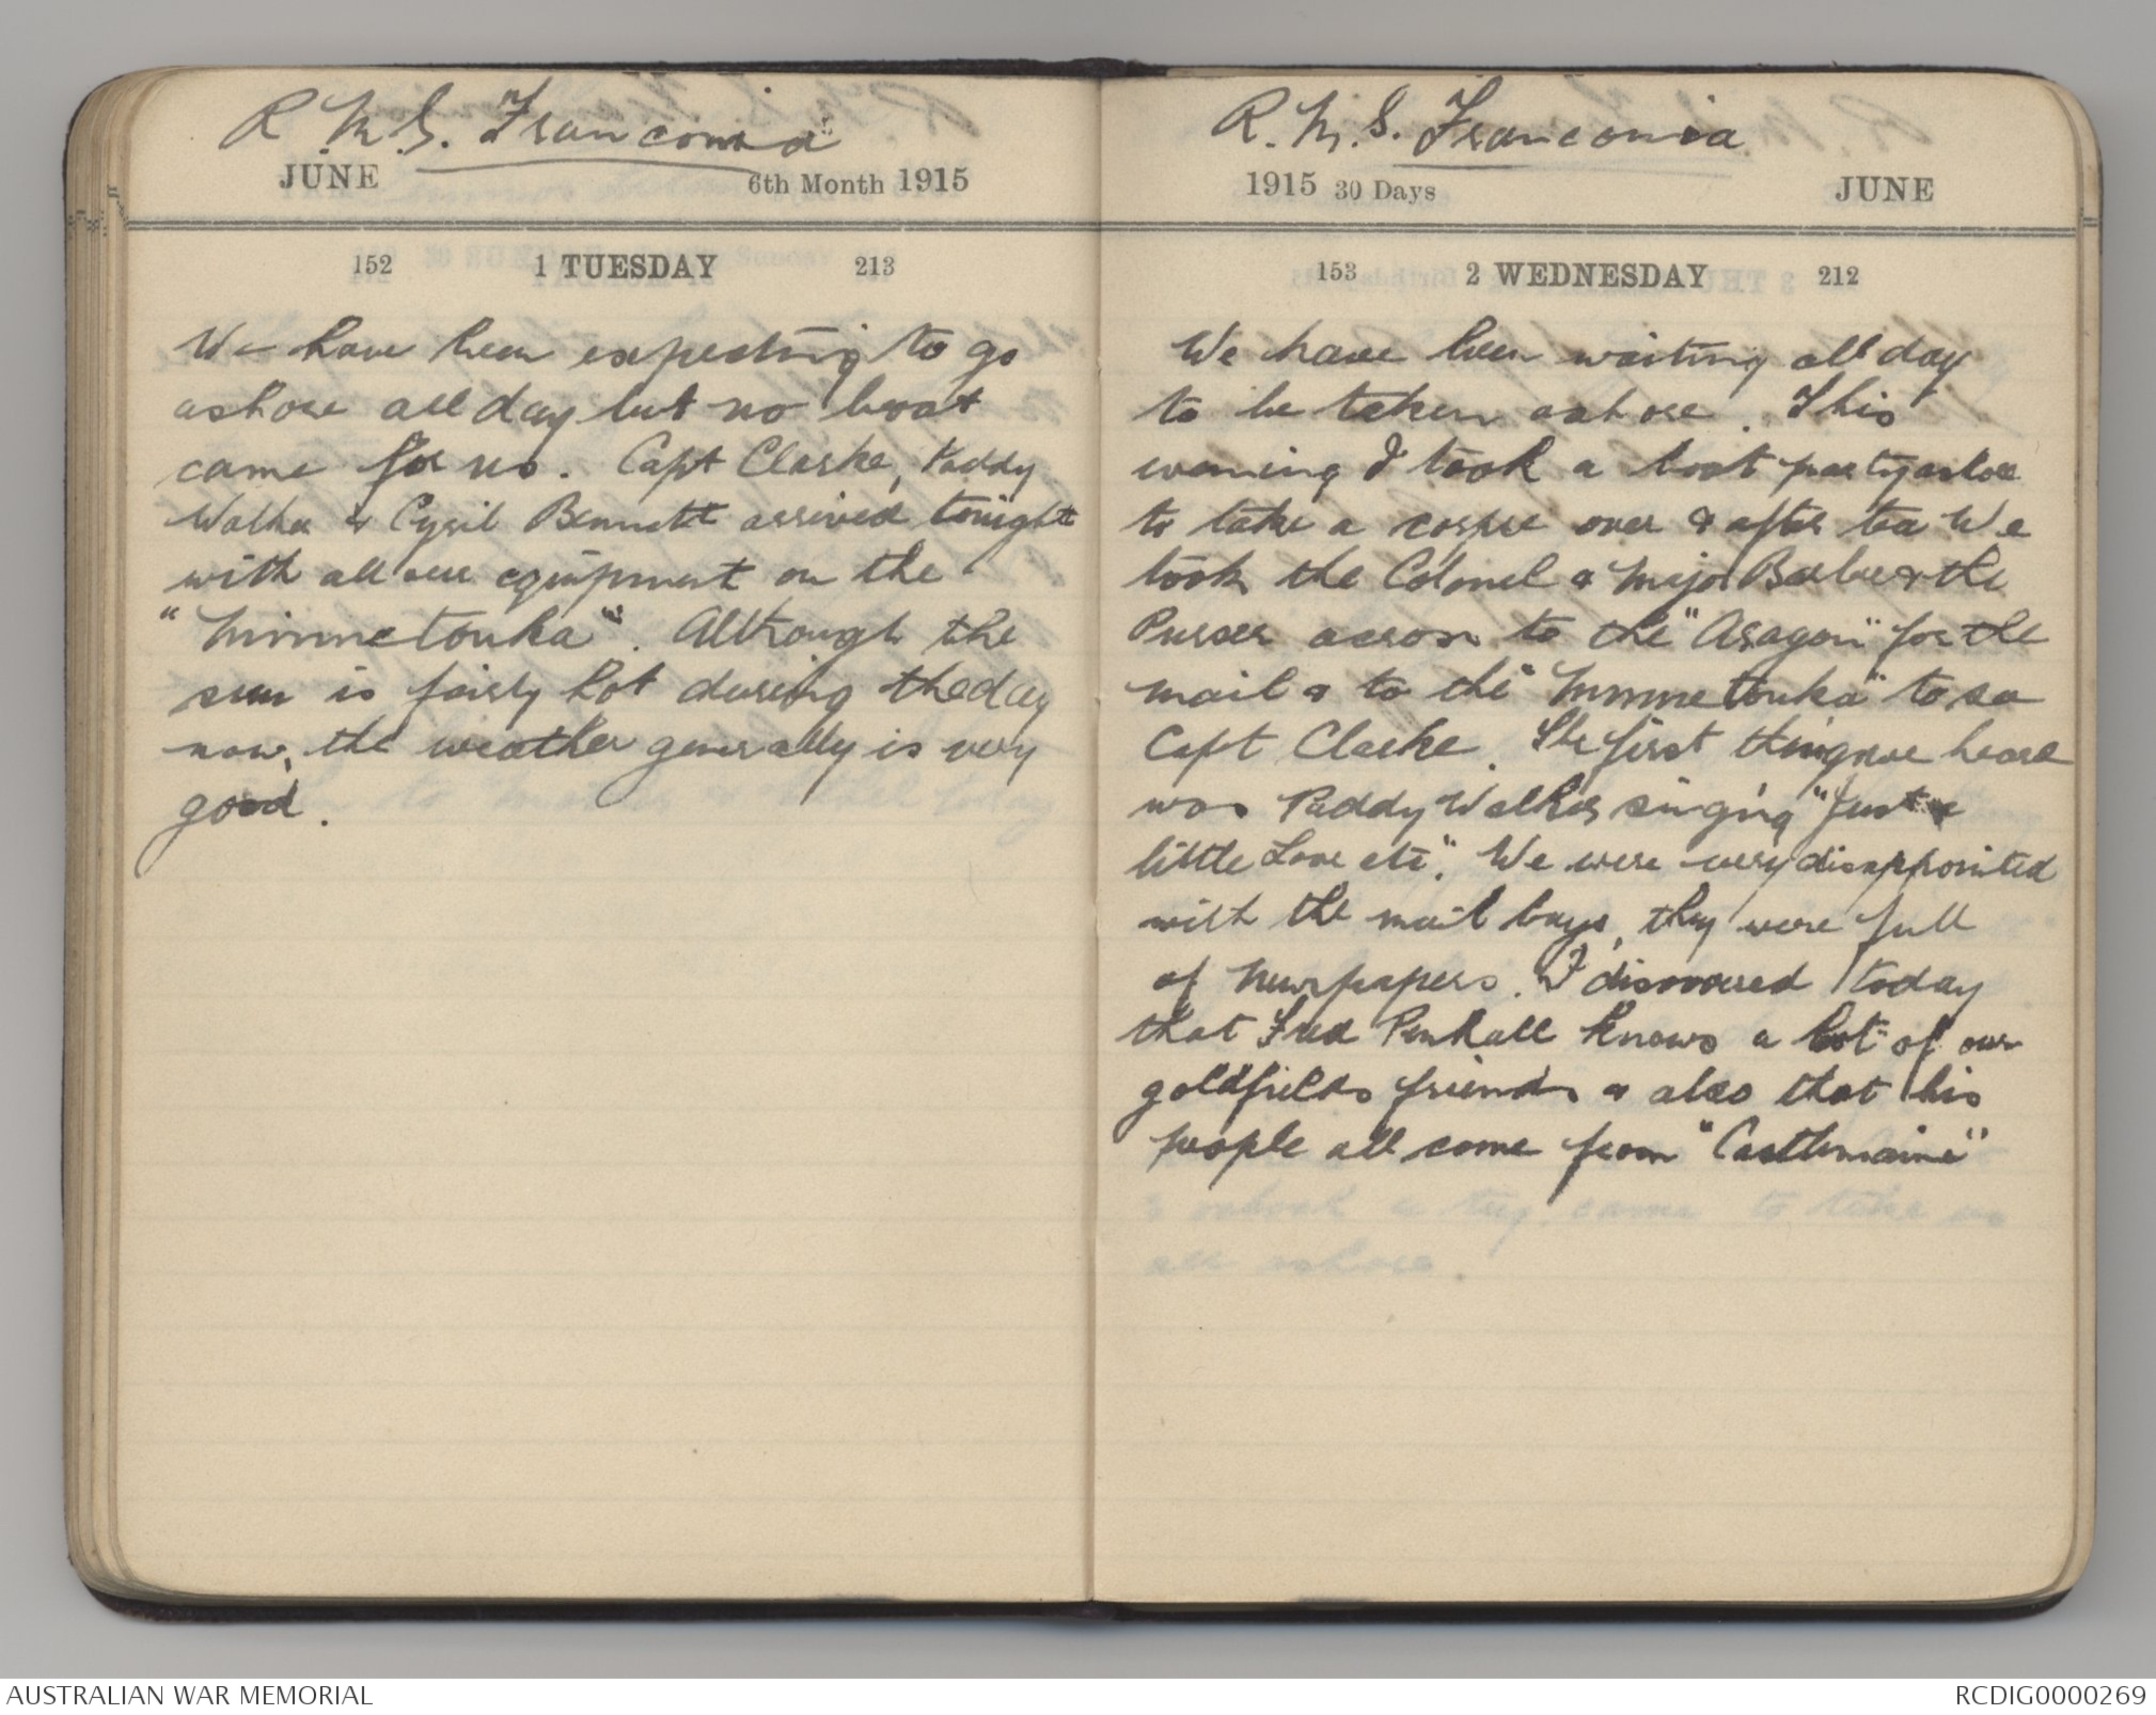 R.M.S. Franconia
JUNE 6th Month 1915
152 1 TUESDAY 213
We have been expecting to go
ashore all day but no boat
came for us. Capt Clarke, Paddy
Walker & Cyril Bennett arrived tonight
with all our equipment on the
"Minnetonka". Although the
sun is fairly hot during the day
now, the weather generally is very
good.
R.M.S. Franconia
1915 30 Days JUNE
153 2 WEDNESDAY 212
We have been waiting all day
to be taken ashore. This
evening I took a boat party ashore
to take a corpse over & after tea We
took the Colonel & Major Barber & the
Purser across to the "Aragon" for the
mail & to the "Minnetonka" to see
Capt Clarke. The first thing we heard
was Paddy Walker singing "Just a
little Love etc". We were very disappointed
with the mail bags, they were full
of Newspapers. I discovered today
that Fred Penhall knows a lot of our
goldfields friends & also that his
people all come from "Castlemaine"
AUSTRALIAN WAR MEMORIAL
RCDIG0000269